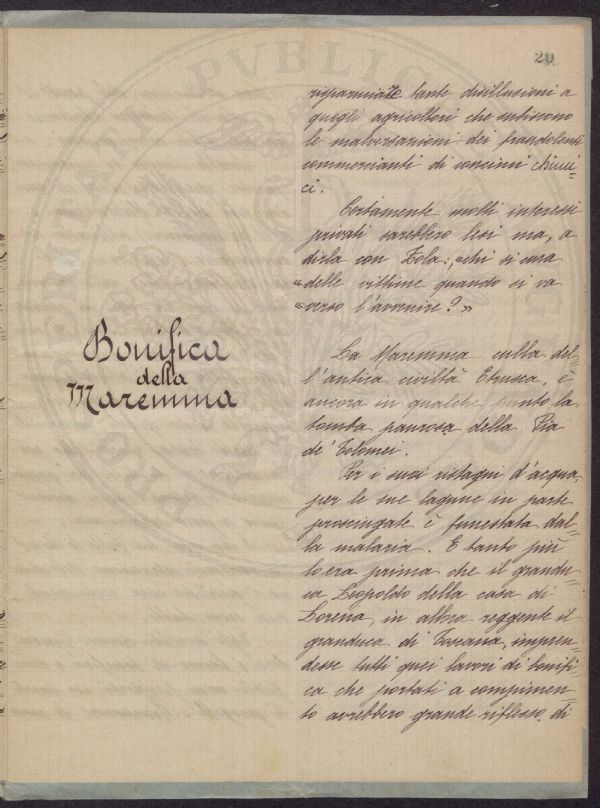 20
risparmiate tante disillusioni a
quegli agricoltori che subiscono
le malversazioni dei fraudolenti
commercianti di concimi chimi-
ci.
Certamente molti interessi
privati sarebbero lesi ma, a
dirla con Zola: "chi si cura
"delle vittime quando si va
"verso l'avvenire?"
Bonifica
della
Maremma
La Maremma culla del-
l'antica civiltà Etrusca, è
ancora in qualche punto la
tomba paurosa della Pia
de' Tolomei.
Per i suoi ristagni d'acqua,
per le sue lagune in parte
prosciugate è funestata dal-
la malaria. E tanto più
lo era prima che il grandu-
ca Leopoldo della casa di
Lorena, in allora reggente il
granduca di Toscana, impren-
desse tutti quei lavori di bonifi-
ca che portati a compimen-
to avrebbero grande riflesso di